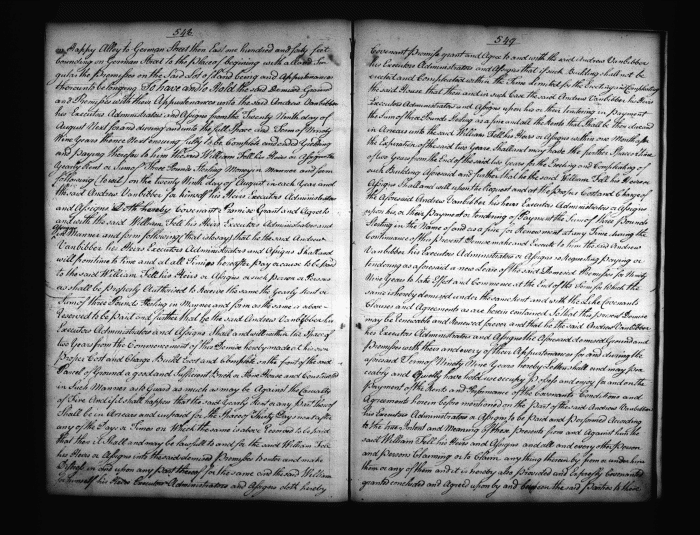 548
Happy Alley to German Street then East one hundred and sixty feet
bounding on German Street to the place of begining with all and Sin
gular the Premisses on the Said Lot of Land being and Appurtenances
thereunto belonging To have and to Hold the said Demised Ground
and Premisses with their Appurtenances unto the said Andrew Vanbibber
his Executors Administrators and Assigns from the Twenty Ninth day of
August Next for and during and unto the full Space and Term of Ninety
Nine Years thence Next ensuing fully to be Compleat and ended Yielding
and paying therefor to him the said William Fell his Heirs or Assigns the
Yearly Rent or Sum of three Pounds Sterling Money in Manner and form
following (to wit) on the Twenty Ninth day of August in each Year and
the said Andrew Vanbibber for himself his Heirs Executors Administrators
and Assigns Doth hereby Covenant Promise Grant and Agree to
and with the said William Fell his Heirs Executors Administrators and
in Manner and form following that is to say that he the said Andrew
Vanbibber his Heirs Executors Administrators and Assigns Shall and
will from time to time and at all Times hereafter pay or cause to be paid
to the said William Fell his Heirs or Assigns or such person or Persons
as shall be properly Authorized to Receive the same the Yearly Rent or
Sum of three Pounds Sterling in Manner and form as the same is above
Reserved to be paid and further that he the said Andrew Vanbibber his
Executors Administrators and Assigns Shall and will within the Space of
two Years from the Commencement of this Demise hereby made at his own
Proper Cost and Charge Build Erect and Compleat on the front of the said
Parcel of Ground a good and Sufficient Brick or Stone House and Constructed
in Such Manner as to Guard as much as may be Against the Casualty
of Fire And if it shall happen that the said Yearly Rent or any Part thereof
Shall be in Arrear and unpaid for the Space of Thirty Days next after
any of the Days or Times on Which the same is above reserved to be paid
that then it Shall and may be lawfull to and for the said William Fell
his Heirs or Assigns into the said demised Premisses to enter and make
Distress in and upon any part thereof for the same and the said William
for himself his Heirs Executors Administrators and Assigns doth hereby
549
Covenant Promise grant and Agree to and with the said Andrew Vanbibber
his Executors Administrators and Assigns that if such Building shall not be
erected and Compleated within the Time limited for the Erecting and Compleating
the said House that then and in such Case the said Andrew Vanbibber his Heirs
Executors Administrators and Assigns upon his or their tendering in Payment
the Sum of three Pounds Sterling as a fine and all the Rents that Shall be then due and
in Arrears unto the said William Fell his Heirs or Assigns within one Month after
the Expiration of the said two Years Shall and may have the further Space or Time
of two Years from the End of the said two Years for the Erecting and Compleating of
such Building Aforesaid and further that he the said William Fell his Heirs or
Assigns Shall and will upon the Request and at the proper Cost and Charge of
the Aforesaid Andrew Vanbibber his heirs Executors Administrators or Assigns
upon his or their Payment or tendering of Payment the Sum of three Pounds
Sterling in the Name of and as a fine for Renewment at any Time during the
Continuance of this present Demise make and Execute to him the said Andrew
Vanbibber his Executors Administrators or Assigns so Requesting Paying or
tendering as aforesaid a new Lease of the said Demised Premisses for Ninety
Nine Years to take Effect and Commence at the End of the Term for Which the
same is hereby demised under the same Rent and with the Like Covenants
Clauses and Agreements as are herein contained So that the present Demise
may be Renewable and Renewed forever and that he the said Andrew Vanbibber
his Executors Administrators and Assigns the Aforesaid demised Ground and
Premisses with their and every of their Appurtenances for and during the
aforesaid Term of Ninety Nine Years hereby Letten shall and may pea
ceably and Quietly have hold use occupy Possess and enjoy for and on the
payment of the Rents and Performance of the Covenants Conditions and
Agreements herein before mentioned on the Part of the said Andrew Vanbibber
his Executors Administrators or Assigns to be Paid and Performed According
to the true Intent and Meaning of these Presents from and Against him the
said William Fell his Heirs and Assigns and all and every other Person
and Persons Claiming or to Claim any thing therein by from or under him
them or any of them and it is hereby also Provided and Expressly Covenanted
granted concluded and Agreed upon by and between the said Parties to these